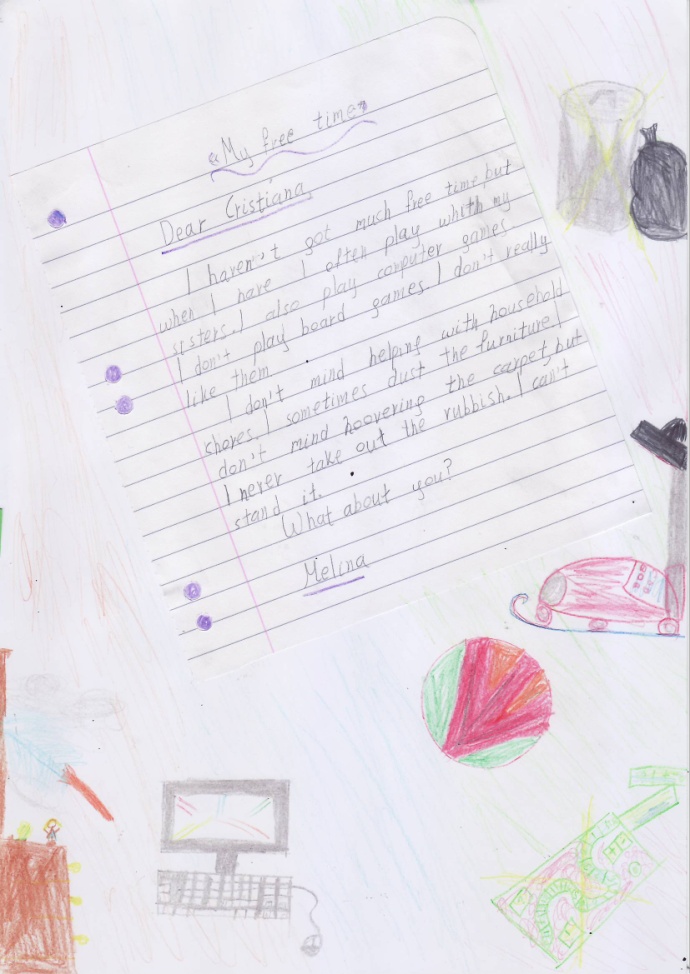 «My free time»
Dear Cristiana,
I haven't got much free time, but
when I have I often play whith my
sisters. I also play corputer games.
I don't play board games. I don't really
like them.
I don't mind helping with household
chores. I sometimes dust the furniture. I
don't mind hoovering the carpet, but
I never take out the rubbish. I can't
stand it.
What about you?
Melina